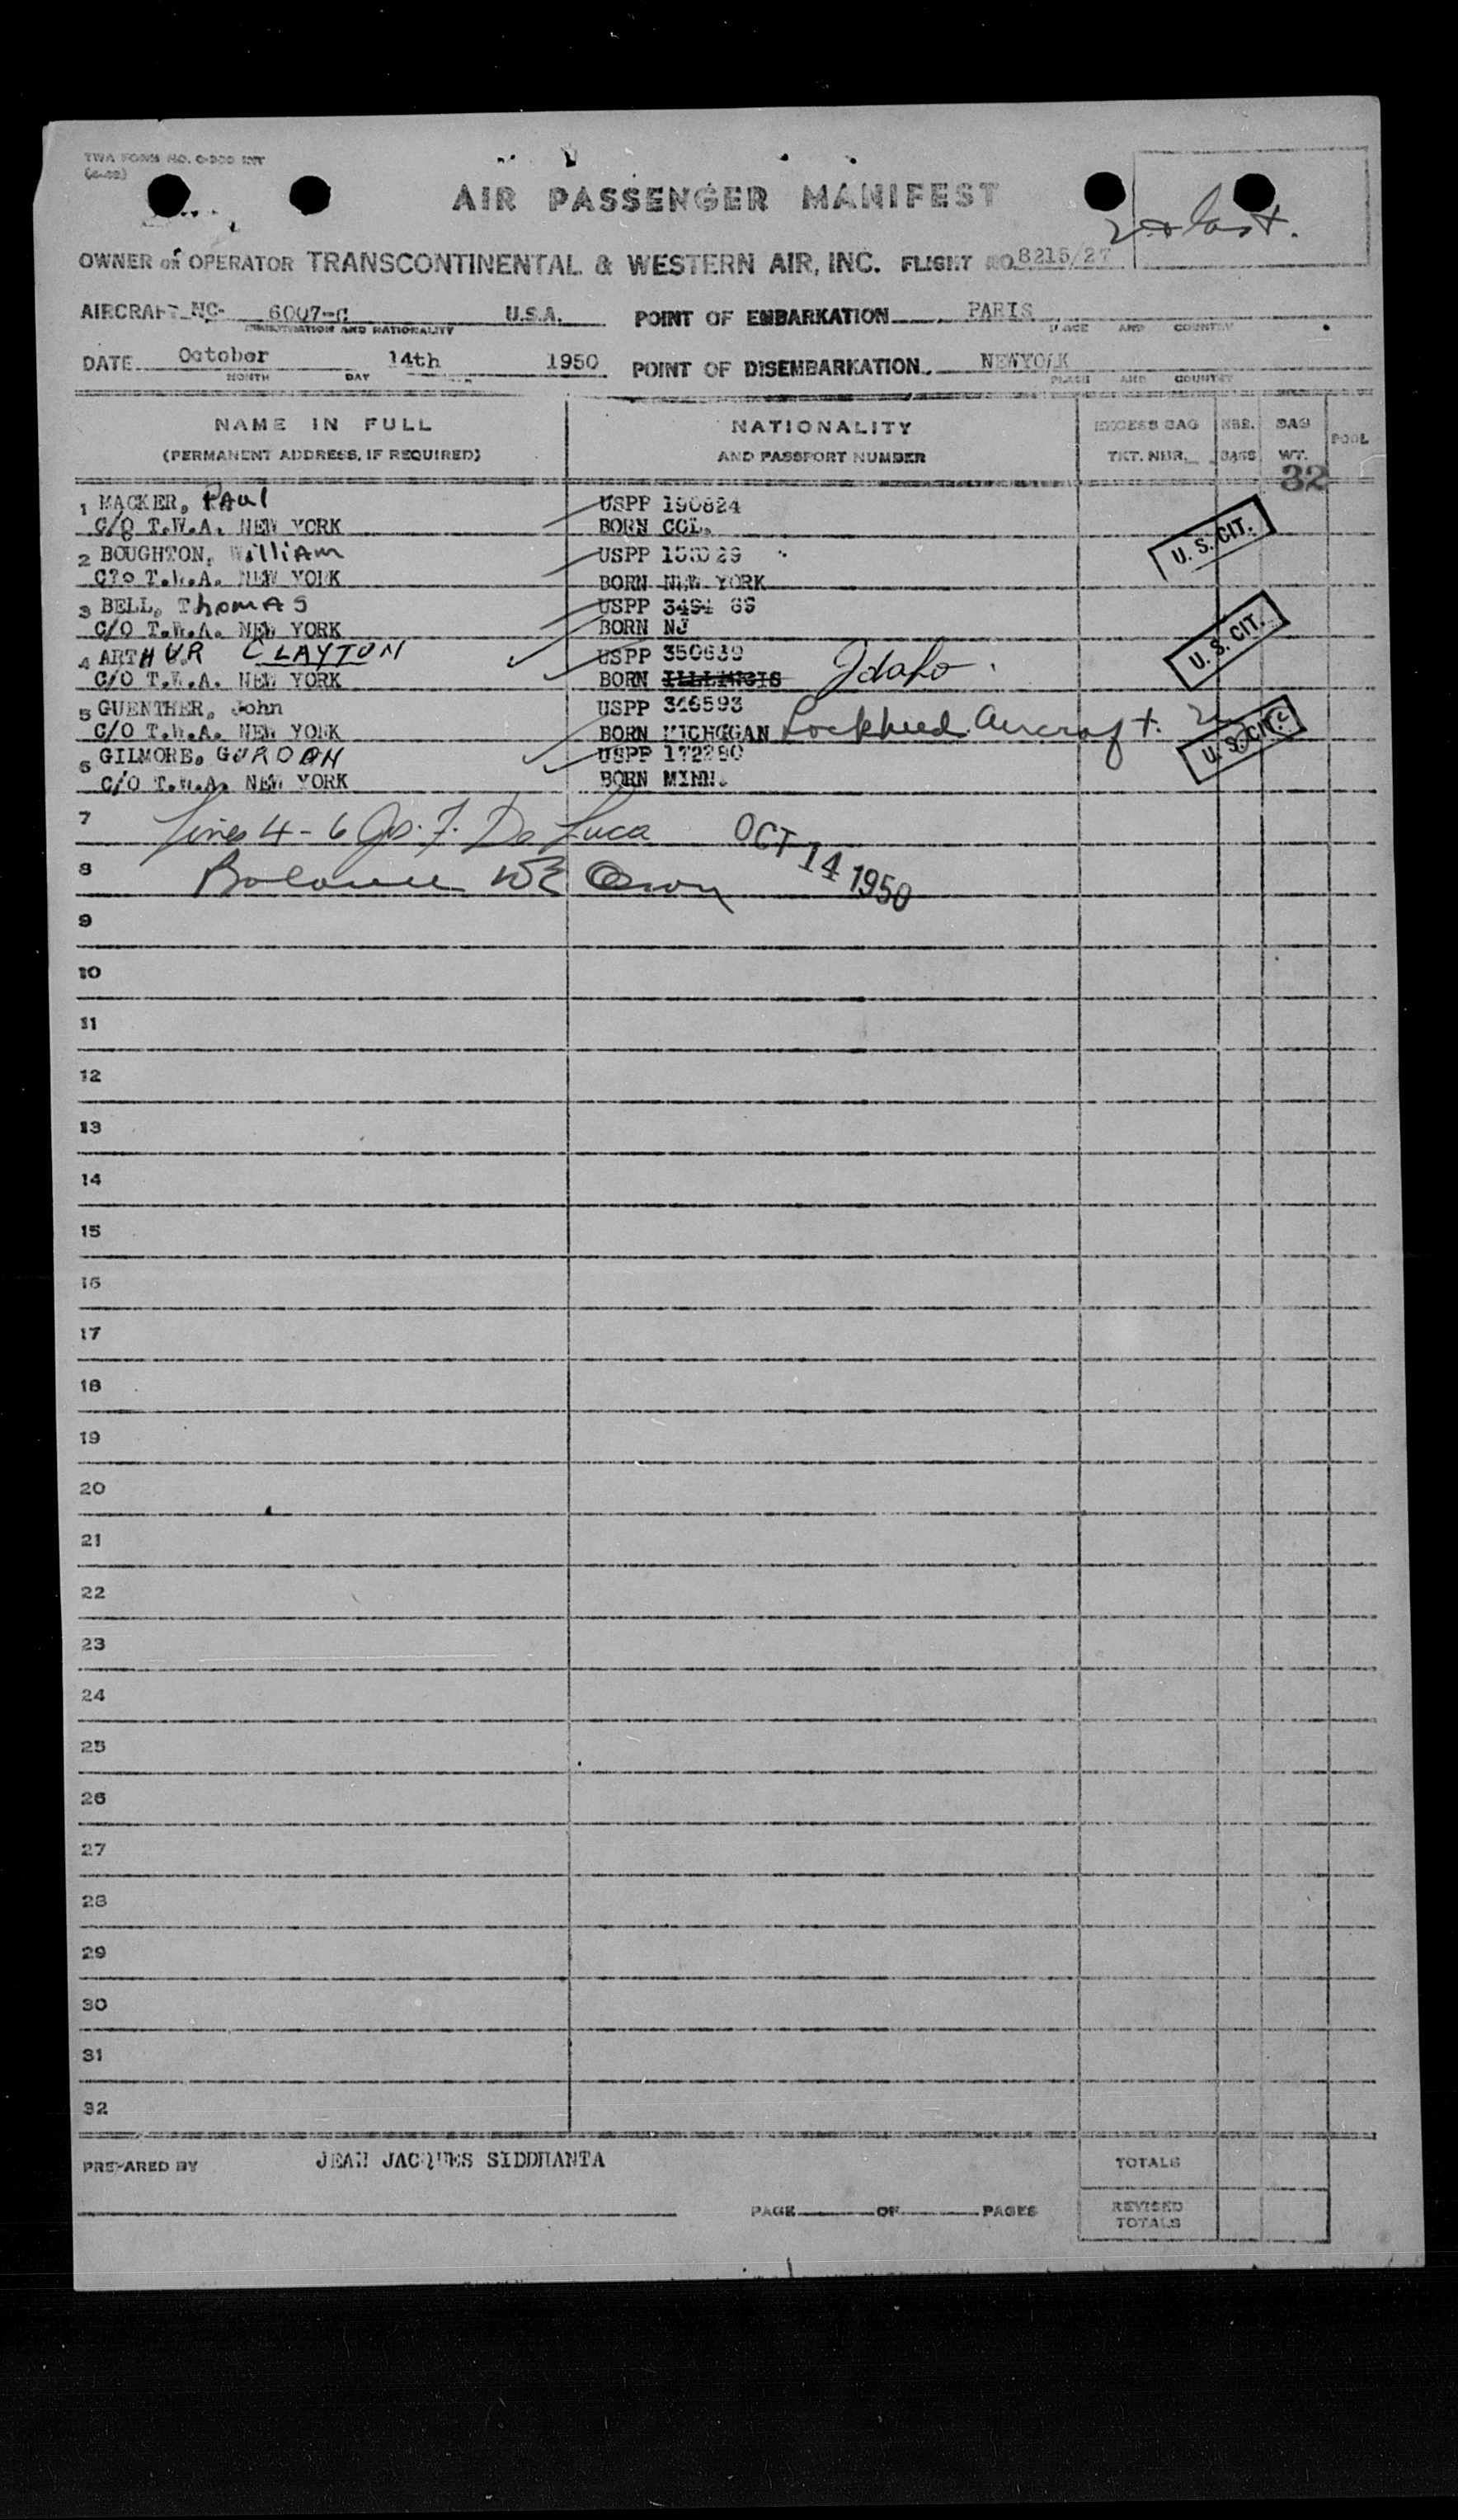 TWA FORM NO.
AIR PASSENGER MANIFEST
last.
OWNER OR OPERATOR TRANSCONTINENTAL & WESTERN AIR, INC. FLIGHT NO. 8215/27
AIRCRAFT NC- 6007-C U.S.A. POINT OF EMBARKATION PARIS
REGISTRATION AND NATIONALITY PLACE AND COUNTRY
DATE October 14th 1950 POINT OF DISEMBARKATION NEWYORK
MONTH DAY PLACE AND COUNTRY
NAME IN FULL NATIONALITY EXCESS BAG NBR. BAG POOL
(PERMANENT ADDRESS, IF REQUIRED) AND PASSPORT NUMBER TKT. NBR. BAGS WT.
32
1 MACKER, PAUL USPP 190824
C/O T.W.A. NEW YORK BORN COL.
U. S. CIT.
2 BOUGHTON, William USPP
C?o T.W.A. NEW YORK BORN NEW YORK
3 BELL, Thomas USPP
C/O T.W.A. NEW YORK BORN NJ
U. S. CIT.
4 ARTHUR CLAYTON USPP
C/O T.W.A. NEW YORK BORN ILLINOIS Idaho.
5 GUENTHER, John USPP
C/O T.W.A. NEW YORK BORN MICHGGAN Lockheed Aircraft.
U. S. CIT.
6 GILMORE, GORDON USPP 172290
C/O T.W.A. NEW YORK BORN MINN.
7 Lines 4-6 Jos. F. De Luca OCT 14 1950
8 Balance
9
10
11
12
13
14
15
16
17
18
19
20
21
22
23
24
25
26
27
28
29
30
31
32
PREPARED BY JEAN JACQUES SIDDHANTA TOTALS
PAGE OF PAGES REVISED
TOTALS